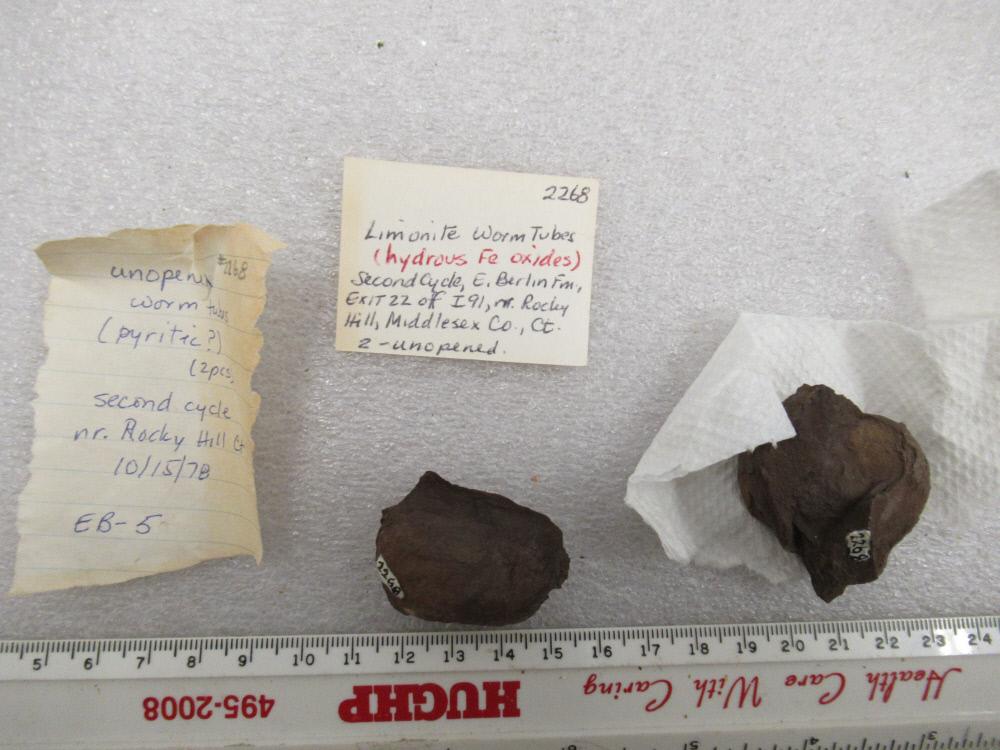 #2268
unopened
worm tubes
(pyritic?)
(2pcs,
second cycle
nr. Rocky Hill Ct
10/15/78
EB-5
2268
Limonite Worm Tubes
(hydrous Fe oxides)
Second Cycle, E. Berlin Fm.,
Exit 22 off I91, nr. Rocky
Hill, Middlesex Co., Ct.
2-unopened.
2268
2268
5 6 7 8 9 10 11 12 13 14 15 16 17 18 19 20 21 22 23 24
Health Care With Caring
HUGHP
495-2008